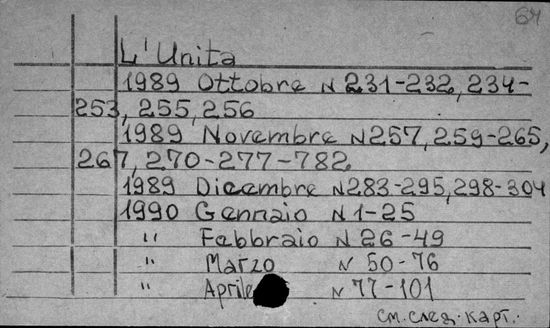 64
L'Unita
1989 Ottobre N 231-232, 234-
253, 255, 256
1989 Novembre N257, 259-265,
267, 270-277-782
1989 Dicembre N283-295, 298-304
1990 Gennaio N 1-25
" Febbraio N 26-49
" Marzo N 50-76
" Aprile N 77-101
см. след. карт.